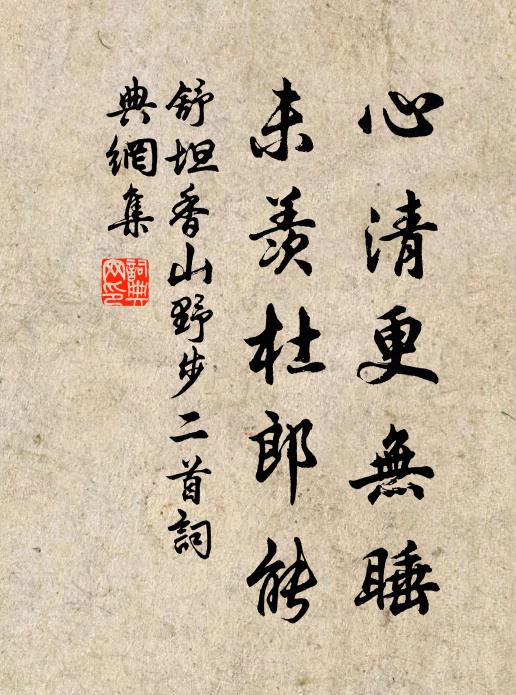 心清更無睡
未羨杜郎能
舒坦香山野步二首詞
典網集
詞典網印